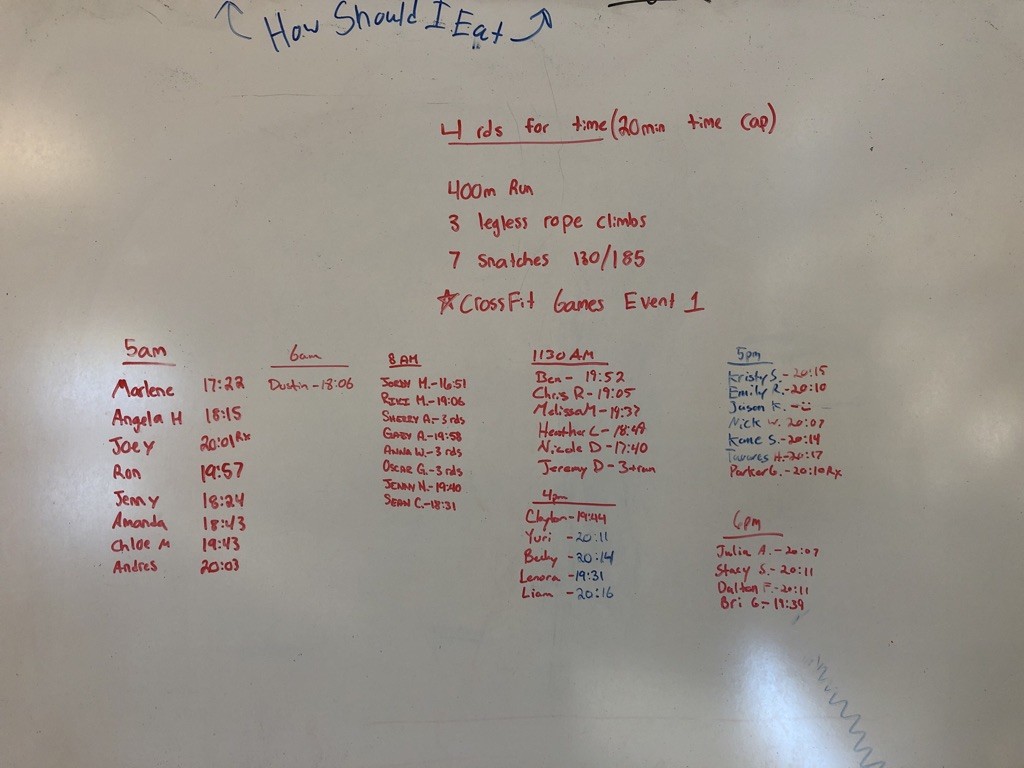 How Should I Eat
4 rds for time (20min time cap)
400m Run
3 legless rope climbs
7 Snatches 130/185
☆CrossFit Games Event 1
5am
Marlene 17:22
Angela H 18:15
Joey 20:01 Rx
Ron 19:57
Jenny 18:24
Amanda 18:43
Chloe M 19:43
Andres 20:03
6am
Dustin - 18:06
8 AM
M.- 16:51
Riki M.- 19:06
Sherry A.- 3 rds
Gaby A.- 19:58
Anna W.- 3 rds
Oscar G.- 3 rds
Jenny N.- 19:40
Sean C.- 18:31
1130 AM
Ben - 19:52
Chris R - 19:05
Melissa M - 19:37
Heather L - 18:49
Nicole D - 17:40
Jeremy D - 3+run
4pm
Clayton - 19:44
Yuri - 20:11
Becky - 20:14
Lenora - 19:31
Liam - 20:16
5pm
Kristy S. - 20:15
Emily R. - 20:10
Jason K. -
Nick W. 20:07
Kane S. - 20:14
Tavares H. - 20:17
Parker G. - 20:10 Rx
6pm
Julia A. - 20:07
Stacy S. - 20:11
Dalton F. - 20:11
Bri G - 19:39